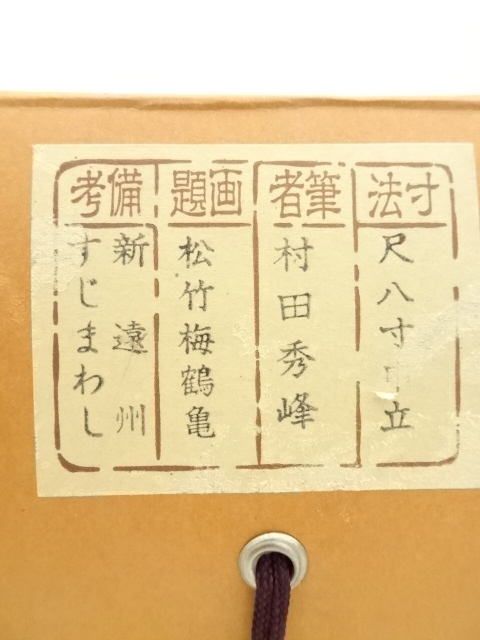 寸法
尺八寸巾立
筆者
村田秀峰
画題
松竹梅鶴亀
備考
新遠州
すじまわし